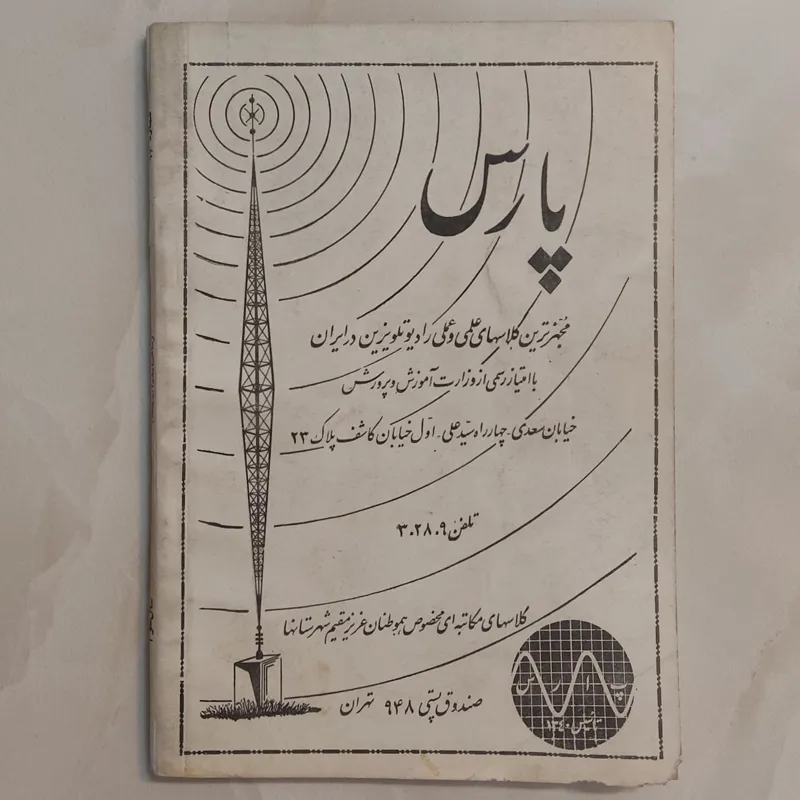 پارس
مجهزترین کلاسهای علمی و عملی رادیو تلویزین در ایران
با امتیاز رسمی از وزارت آموزش و پرورش
خیابان سعدی - چهار راه سید علی - اول خیابان کاشف پلاک ۲۳
تلفن ۳۰۲۸۰۹
کلاسهای مکاتبه ای مخصوص هموطنان عزیز مقیم شهرستانها
صندوق پستی ۹۴۸ تهران
پارس
تاسیس ۱۳۴۰